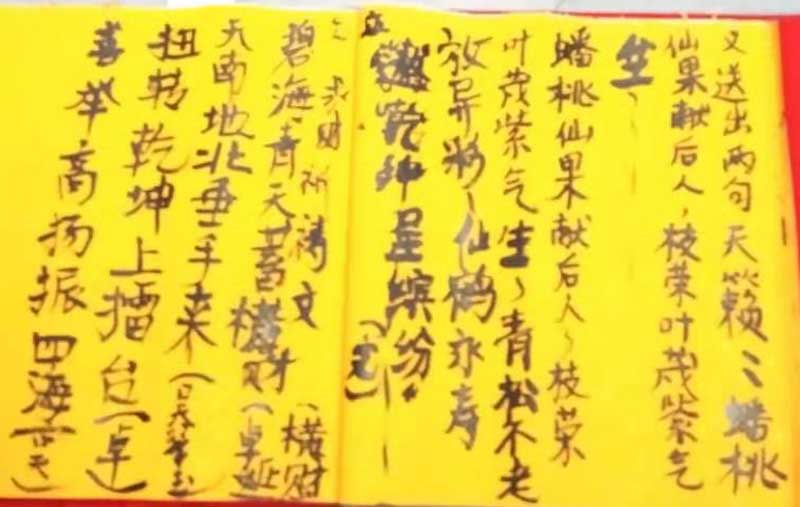 又送出两句天籁：蟠桃
仙果献后人，枝荣叶茂紫气
生，
蟠桃仙果献后人，枝荣
叶茂紫气生，青松不老
放异彩，仙鹤永寿
乾坤呈缤纷。
求财祈祷文（横财
碧海青天蓄横财（卓
天南地北垂手来（
扭转乾坤上擂台（卓）
喜举高扬振四海（